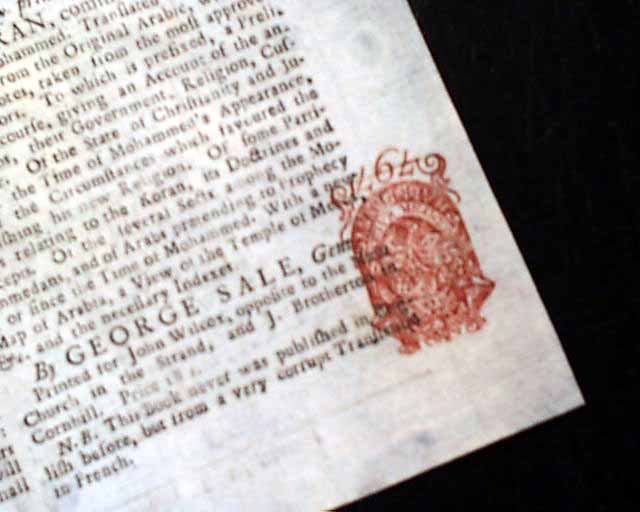 RAN,
Mohammed. Translated
from the Original Arab
otes, taken from the most approv
ort. To which is prefixed, a Preli
course, giving an Account of the an
their Government, Religion, Cuſ-
Of the State of Chriſtianity and Ju-
the Time of Mohammed's Appearance,
the Circumſtances which favoured the
iſhing his new Religion. Of ſome Parti-
relating to the Koran, its Doctrines and
cepts. Of the ſeveral Sects among the Mo-
mmedans, and of Arabs pretending to Prophecy
or ſince the Time of Mohammed. With a
Map of Arabia, a View of the Temple of
&c. and the neceſſary Indexes
By GEORGE SALE, Gent
Printed for John Wilcox, oppoſite to the New
Church in the Strand; and J. Brotherton in
Cornhill. Price
N.B. This Book never was publiſhed in
liſh before, but from a very corrupt Tranſlation
in French.